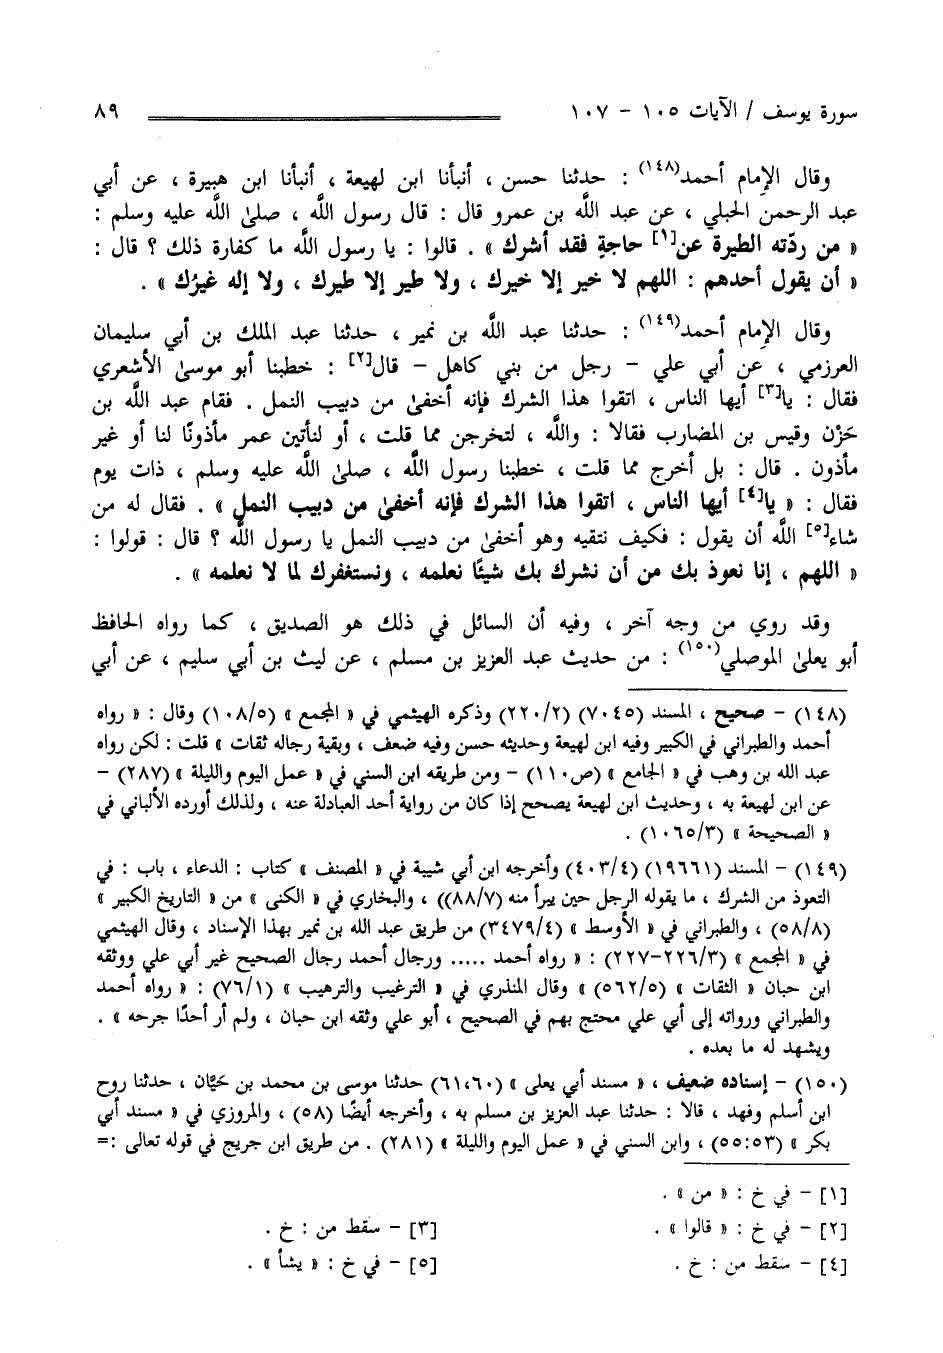 سورة يوسف / الآيات ١٠٥ - ١٠٧ ٨٩
وقال الإمام أحمد(١٤٨) : حدثنا حسن ، أنبأنا ابن لهيعة ، أنبأنا ابن هبيرة ، عن أبي
عبد الرحمن الحبلي ، عن عبد الله بن عمرو قال : قال رسول الله ، صلى الله عليه وسلم :
« من ردّته الطيرة عن[١] حاجةٍ فقد أشرك » . قالوا : يا رسول الله ما كفارة ذلك ؟ قال :
« أن يقول أحدهم : اللهم لا خير إلا خيرك ، ولا طير إلا طيرك ، ولا إله غيرُك » .
وقال الإمام أحمد(١٤٩) : حدثنا عبد الله بن نمير ، حدثنا عبد الملك بن أبي سليمان
العرزمي ، عن أبي علي - رجل من بني كاهل - قال[٢] : خطبنا أبو موسىٰ الأشعري
فقال : يا[٣] أيها الناس ، اتقوا هذا الشرك فإنه أخفىٰ من دبيب النمل . فقام عبد الله بن
حَزْن وقيس بن المضارب فقالا : والله ، لتخرجن مما قلت ، أو لنأتين عمر مأذونًا لنا أو غير
مأذون . قال : بل أخرج مما قلت ، خطبنا رسول الله ، صلىٰ الله عليه وسلم ، ذات يوم
فقال : « يا[٤] أيها الناس ، اتقوا هذا الشرك فإنه أخفىٰ من دبيب النمل » . فقال له من
شاء[٥] الله أن يقول : فكيف نتقيه وهو أخفىٰ من دبيب النمل يا رسول الله ؟ قال : قولوا :
« اللهم ، إنا نعوذ بك من أن نشرك بك شيئًا نعلمه ، ونستغفرك لما لا نعلمه » .
وقد روي من وجه آخر ، وفيه أن السائل في ذلك هو الصديق ، كما رواه الحافظ
أبو يعلىٰ الموصلي(١٥٠) : من حديث عبد العزيز بن مسلم ، عن ليث بن أبي سليم ، عن أبي
(١٤٨) - صحيح ، المسند (٧٠٤٥) (٢٢٠/٢) وذكره الهيثمي في « المجمع » (١٠٨/٥) وقال : « رواه
أحمد والطبراني في الكبير وفيه ابن لهيعة وحديثه حسن وفيه ضعف ، وبقية رجاله ثقات » قلت : لكن رواه
عبد الله بن وهب في « الجامع » (ص١١٠) - ومن طريقه ابن السني في « عمل اليوم والليلة » (٢٨٧) -
عن ابن لهيعة به ، وحديث ابن لهيعة يصحح إذا كان من رواية أحد العبادلة عنه ، ولذلك أورده الألباني في
« الصحيحة » (١٠٦٥/٣) .
(١٤٩) - المسند (١٩٦٦١) (٤٠٣/٤) وأخرجه ابن أبي شيبة في « المصنف » كتاب : الدعاء ، باب : في
التعوذ من الشرك ، ما يقوله الرجل حين يبرأ منه (٨٨/٧)) ، والبخاري في « الكنى » من « التاريخ الكبير »
(٥٨/٨) ، والطبراني في « الأوسط » (٣٤٧٩/٤) من طريق عبد الله بن نمير بهذا الإسناد ، وقال الهيثمي
في « المجمع » (٢٢٦/٣-٢٢٧) : « رواه أحمد ..... ورجال أحمد رجال الصحيح غير أبي علي ووثقه
ابن حبان « الثقات » (٥٦٢/٥) » وقال المنذري في « الترغيب والترهيب » (٧٦/١) : « رواه أحمد
والطبراني ورواته إلى أبي علي محتج بهم في الصحيح ، أبو علي وثقه ابن حبان ، ولم أر أحدًا جرحه » .
ويشهد له ما بعده .
(١٥٠) - إسناده ضعيف ، « مسند أبي يعلى » (٦١،٦٠) حدثنا موسى بن محمد بن حَيَّان ، حدثنا روح
ابن أسلم وفهد ، قالا : حدثنا عبد العزيز بن مسلم به ، وأخرجه أيضًا (٥٨) ، والمروزي في « مسند أبي
بكر » (٥٥:٥٣) ، وابن السني في « عمل اليوم والليلة » (٢٨١) . من طريق ابن جريج في قوله تعالى :=
[١] - في خ : « من » .
[٢] - في خ : « قالوا » . [٣] - سقط من : خ .
[٤] - سقط من : خ . [٥] - في خ : « يشأ » .